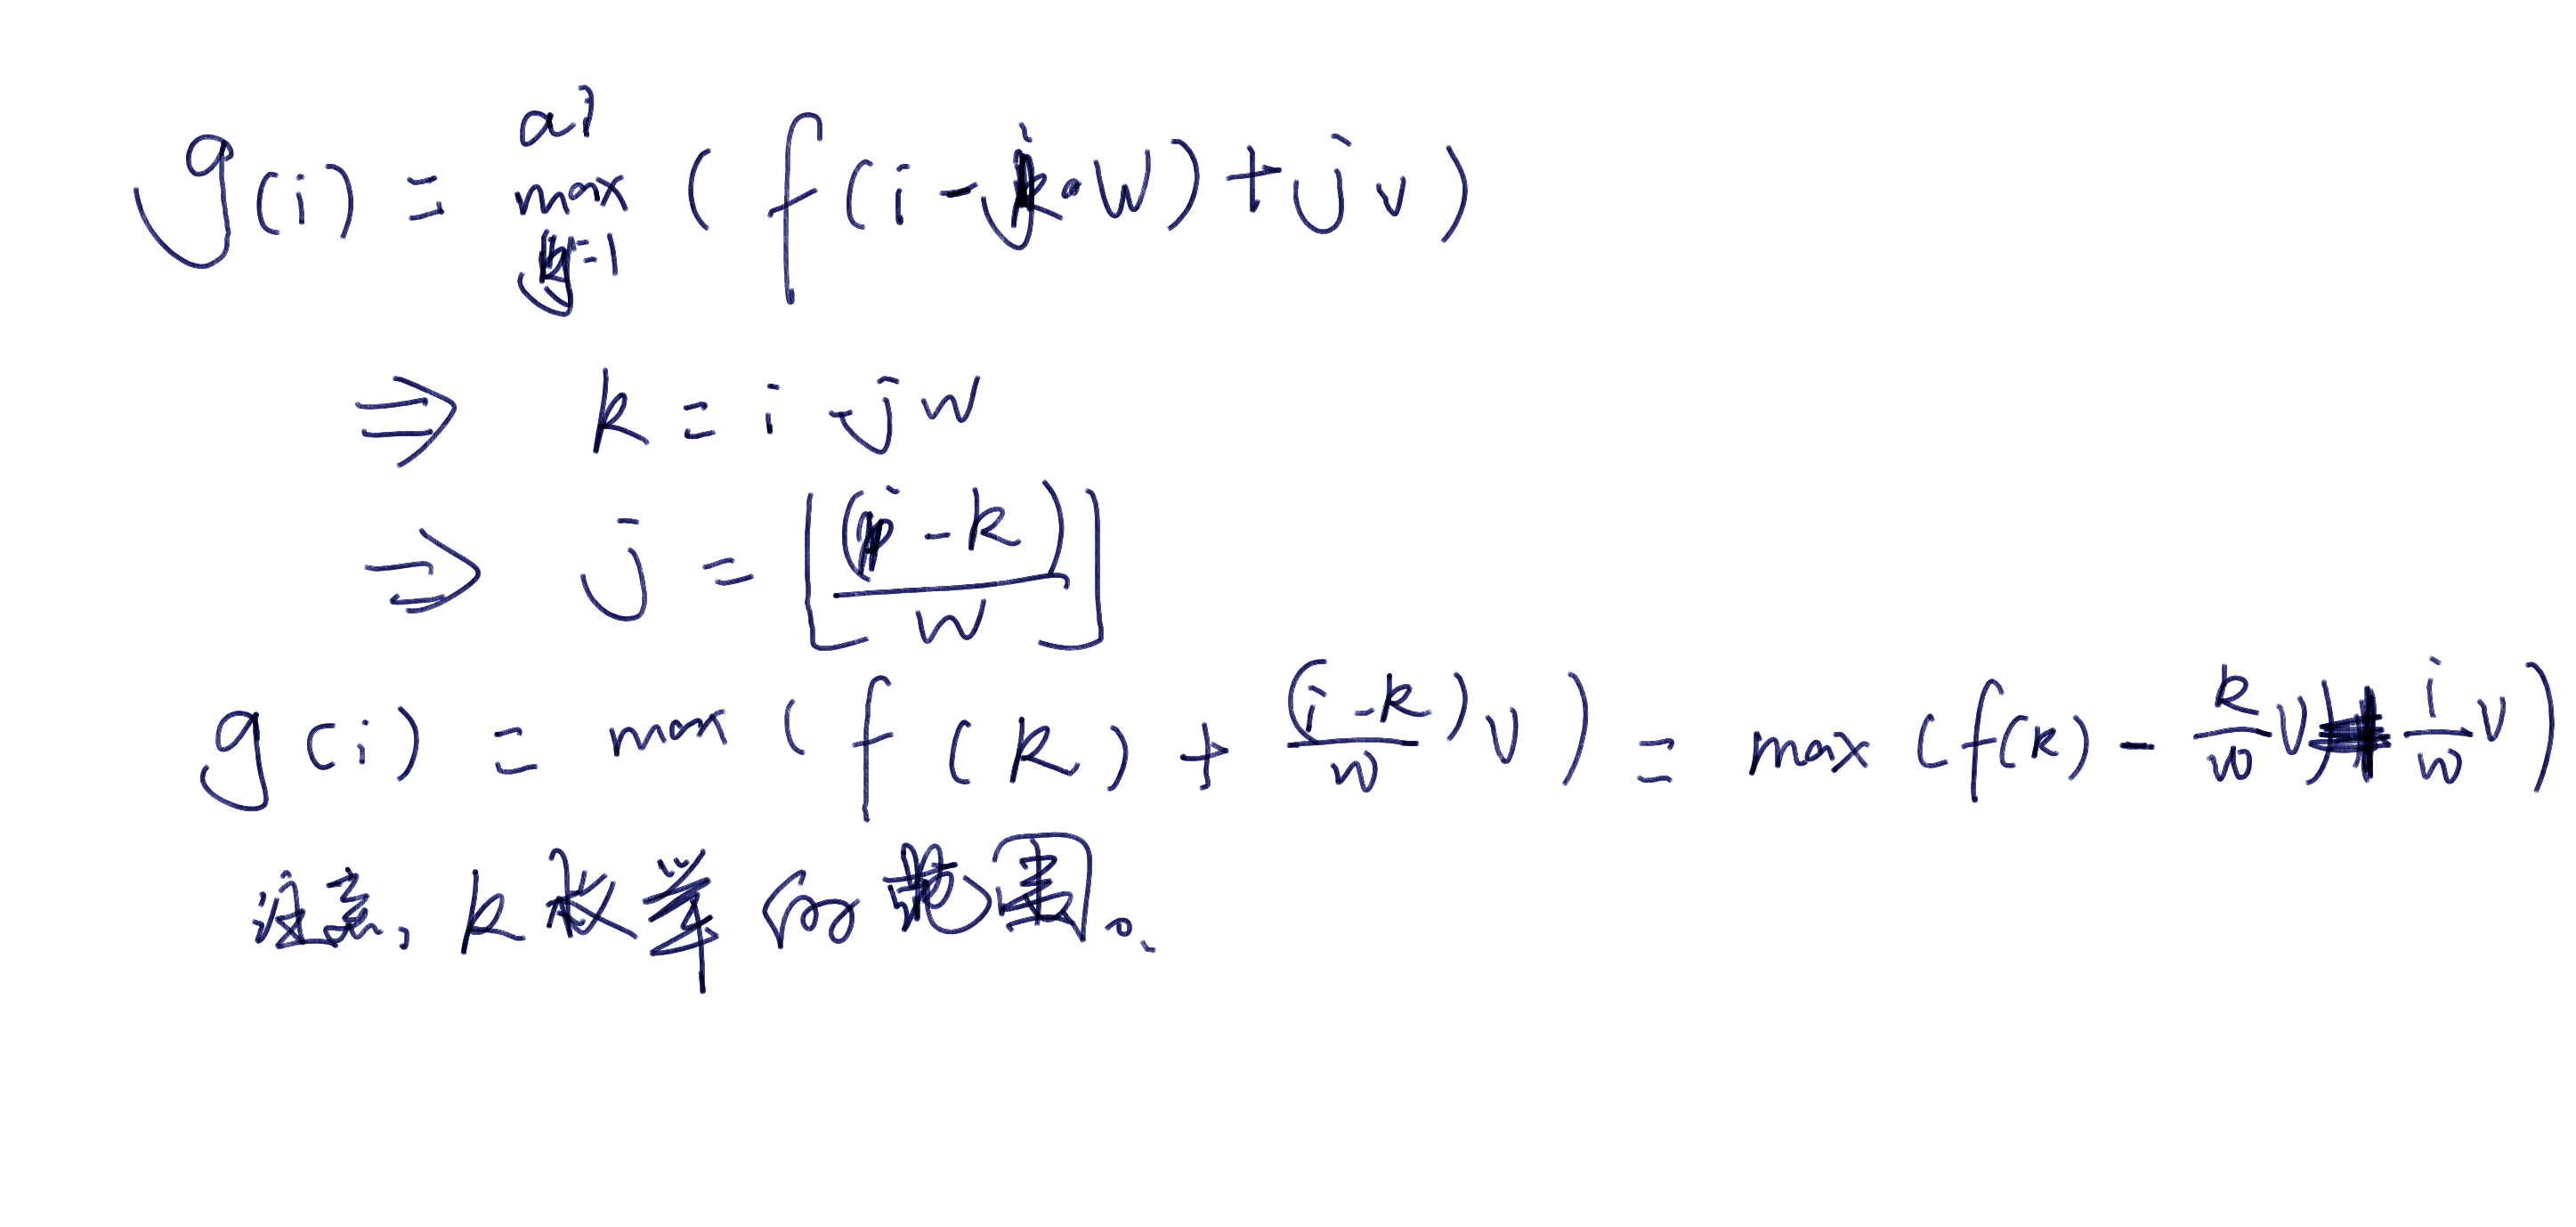 g(i) = max_{j=1}^{a_i} ( f(i - j·w) + jv )
⇒ k = i - jw
⇒ j = ⌊(i - k)/w⌋
g(i) = max ( f(k) + (i - k)/w v ) = max ( f(k) - k/w v + i/w v )
注意, k 枚举的范围。